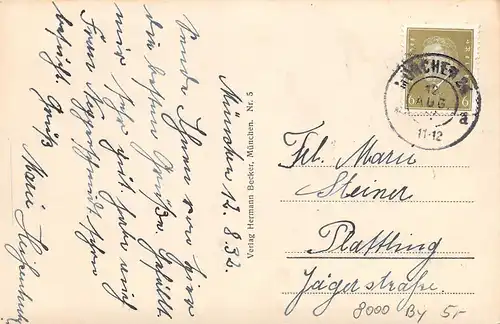 München 12.8.32.
Sende Ihnen von hier
die besten Grüße. Gefällt
mir sehr gut. Habe auch
Frau schon
besucht. Gruß
Marie
Verlag Hermann Becker, München. Nr. 5
6 6
MÜNCHEN
12
AUG
11-12
a
Frl. Marie
Steiner
Plattling
Jägerstraße.
8000 By 5,-